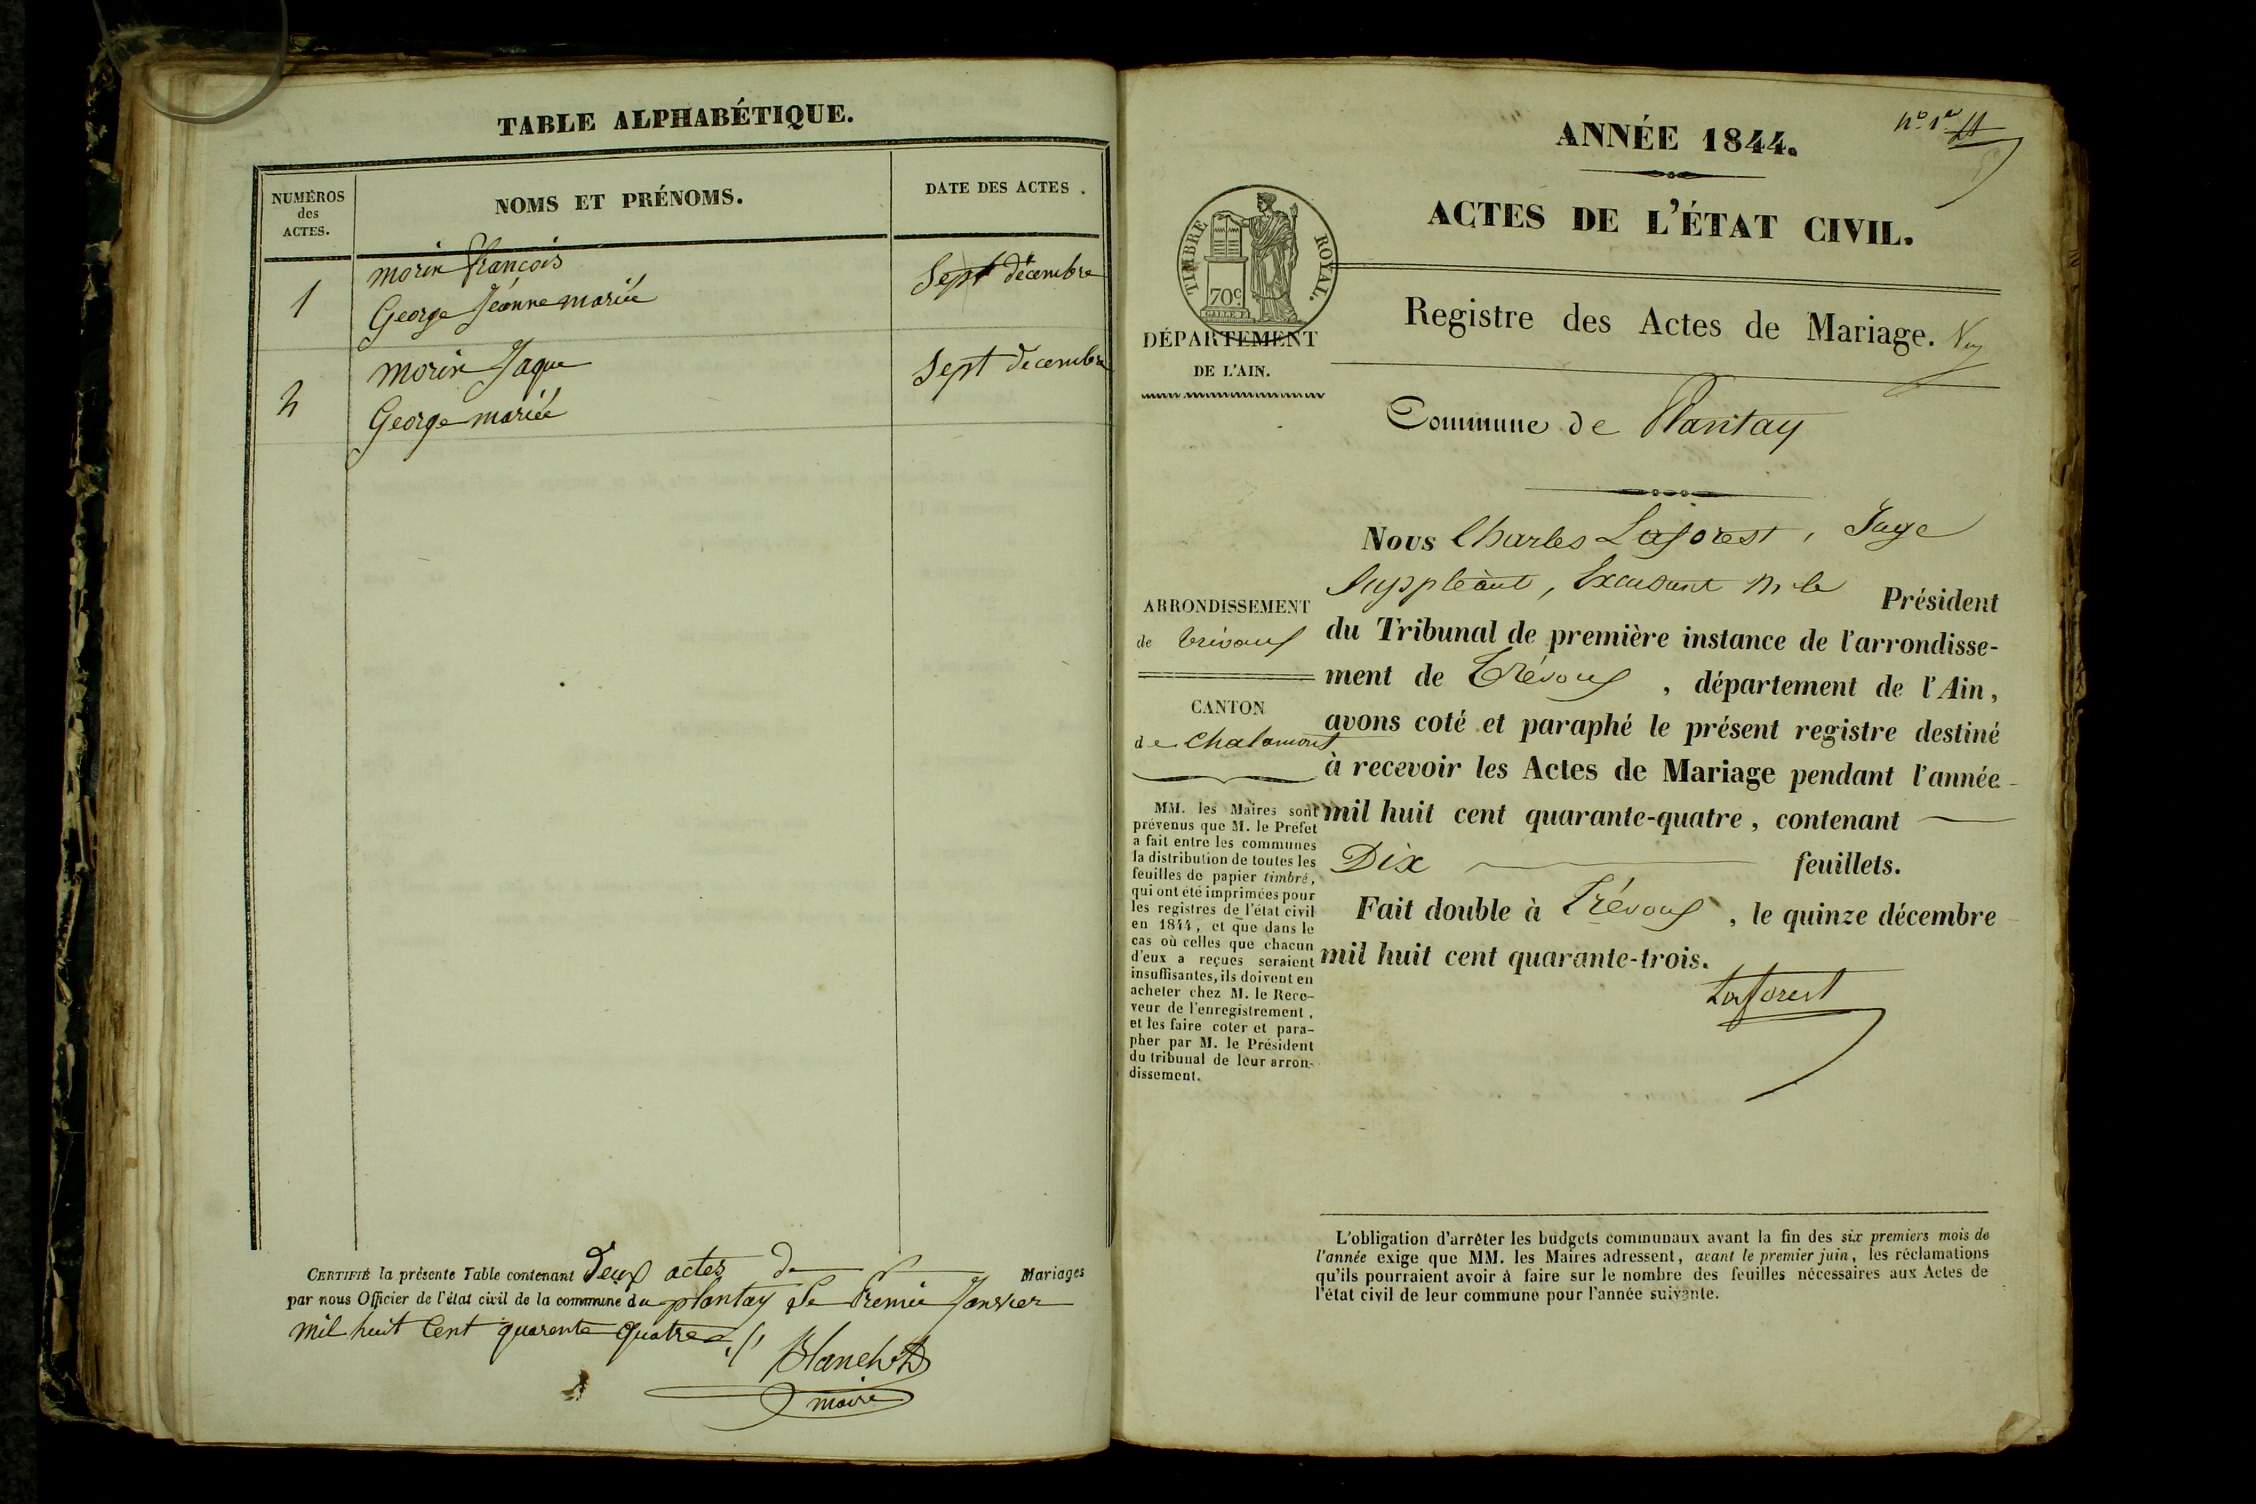 TABLE ALPHABÉTIQUE.
NUMÉROS
des
ACTES.
NOMS ET PRÉNOMS.
DATE DES ACTES.
1
morin françois
George Jéanne mariée
Sept décembre
2
morin Jaque
George mariée
Sept decembre
CERTIFIÉ la présente Table contenant deux actes de Mariages
par nous Officier de l'état civil de la commune du plantay Le Premier Janvier
mil huit Cent quarente quatre
Blanchet
maire
nº 1er
ANNÉE 1844.
ACTES DE L'ÉTAT CIVIL.
TIMBRE ROYAL.
70c.
DÉPARTEMENT
DE L'AIN.
Registre des Actes de Mariage.
Commune de Plantay
ARRONDISSEMENT
de trévoux
CANTON
de Chalamont
MM. les Maires sont
prévenus que M. le Préfet
a fait entre les communes
la distribution de toutes les
feuilles de papier timbré,
qui ont été imprimées pour
les registres de l'état civil
en 1844, et que dans le
cas où celles que chacun
d'eux a reçues seraient
insuffisantes, ils doivent en
acheter chez M. le Rece-
veur de l'enregistrement,
et les faire coter et para-
pher par M. le Président
du tribunal de leur arron-
dissement.
Nous Charles Laforest, Juge
Suppléant, Excusant M. le Président
du Tribunal de première instance de l'arrondisse-
ment de Trévoux, département de l'Ain,
avons coté et paraphé le présent registre destiné
à recevoir les Actes de Mariage pendant l'année
mil huit cent quarante-quatre, contenant
Dix feuillets.
Fait double à Trévoux, le quinze décembre
mil huit cent quarante-trois.
Laforest
L'obligation d'arrêter les budgets communaux avant la fin des six premiers mois de
l'année exige que MM. les Maires adressent, avant le premier juin, les réclamations
qu'ils pourraient avoir à faire sur le nombre des feuilles nécessaires aux Actes de
l'état civil de leur commune pour l'année suivante.